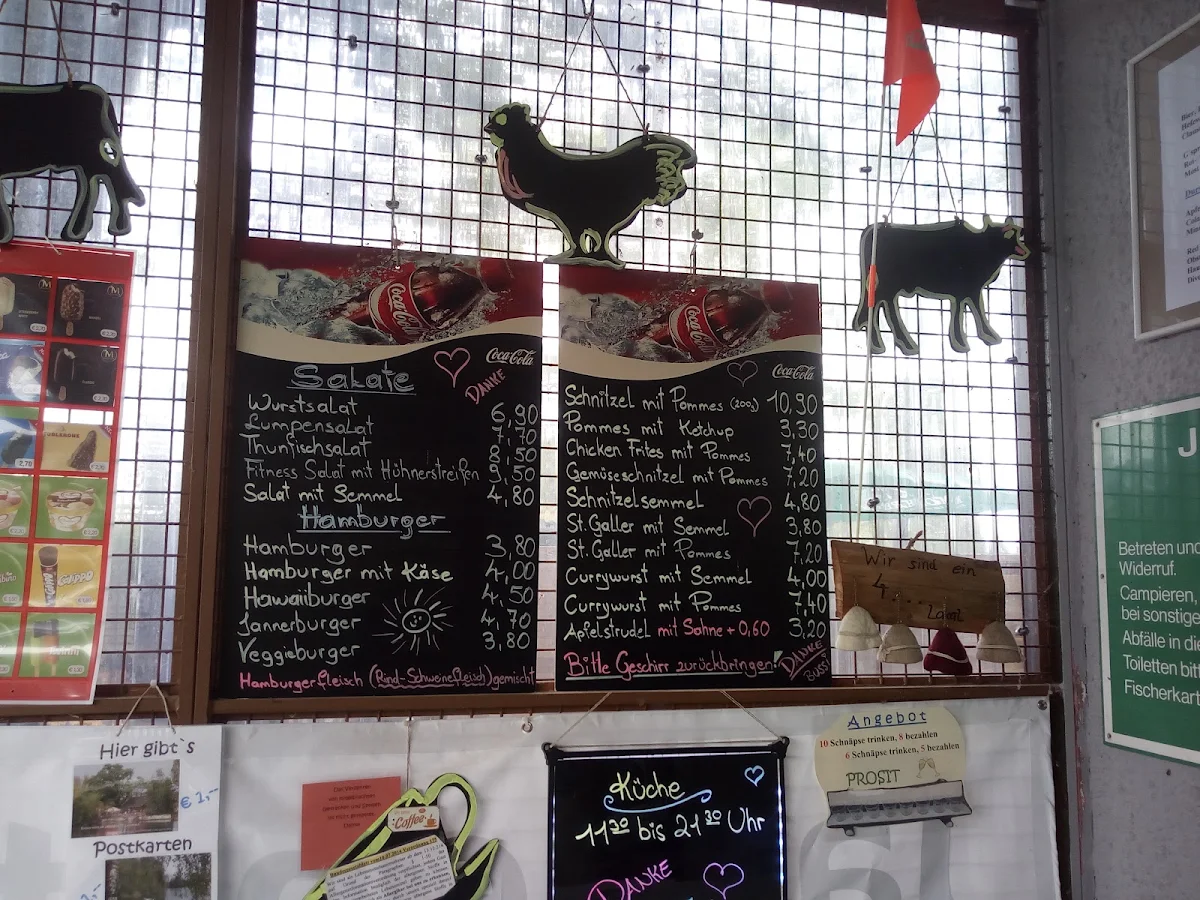 Coca-Cola
Coca-Cola
DANKE
Salate
Wurstsalat 6,90
Lumpensalat 7,70
Thunfischsalat 8,50
Fitness Salat mit Hühnerstreifen 9,50
Salat mit Semmel 4,80
Hamburger
Hamburger 3,80
Hamburger mit Käse 4,00
Hawaiiburger 4,50
Jannerburger 4,70
Veggieburger 3,80
Hamburgerfleisch (Rind-Schweinefleisch) gemischt
Coca-Cola
Coca-Cola
Schnitzel mit Pommes (200g) 10,90
Pommes mit Ketchup 3,30
Chicken Frites mit Pommes 7,40
Gemüseschnitzel mit Pommes 7,20
Schnitzelsemmel 4,80
St.Galler mit Semmel 3,80
St.Galler mit Pommes 7,20
Currywurst mit Semmel 4,00
Currywurst mit Pommes 7,40
Apfelstrudel mit Sahne + 0,60 3,20
Bitte Geschirr zurückbringen!
DANKE
BUSSI
Wir sind ein
4... Lokal
Betreten und
Widerruf.
Campieren,
bei sonstige
Abfälle in die
Toiletten bitt
Fischerkart
Hier gibt`s
€ 1,-
Postkarten
Coffee
Küche
11 30 bis 21 30 Uhr
DANKE
Angebot
10 Schnäpse trinken, 8 bezahlen
6 Schnäpse trinken, 5 bezahlen
PROSIT